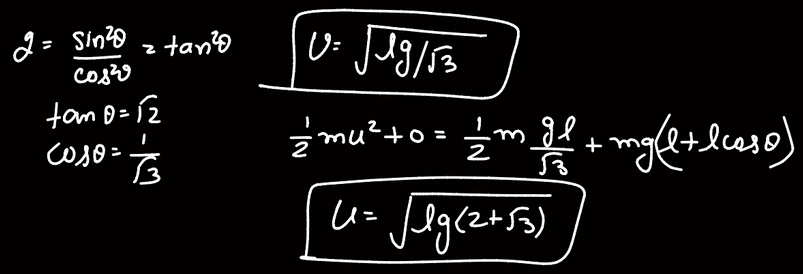 2 = sin²θ/cos²θ = tan²θ
tan θ = √2
cos θ = 1/√3
v = √(lg/√3)
1/2 mu² + 0 = 1/2 m gl/√3 + mg(l + l cos θ)
u = √(lg(2+√3))